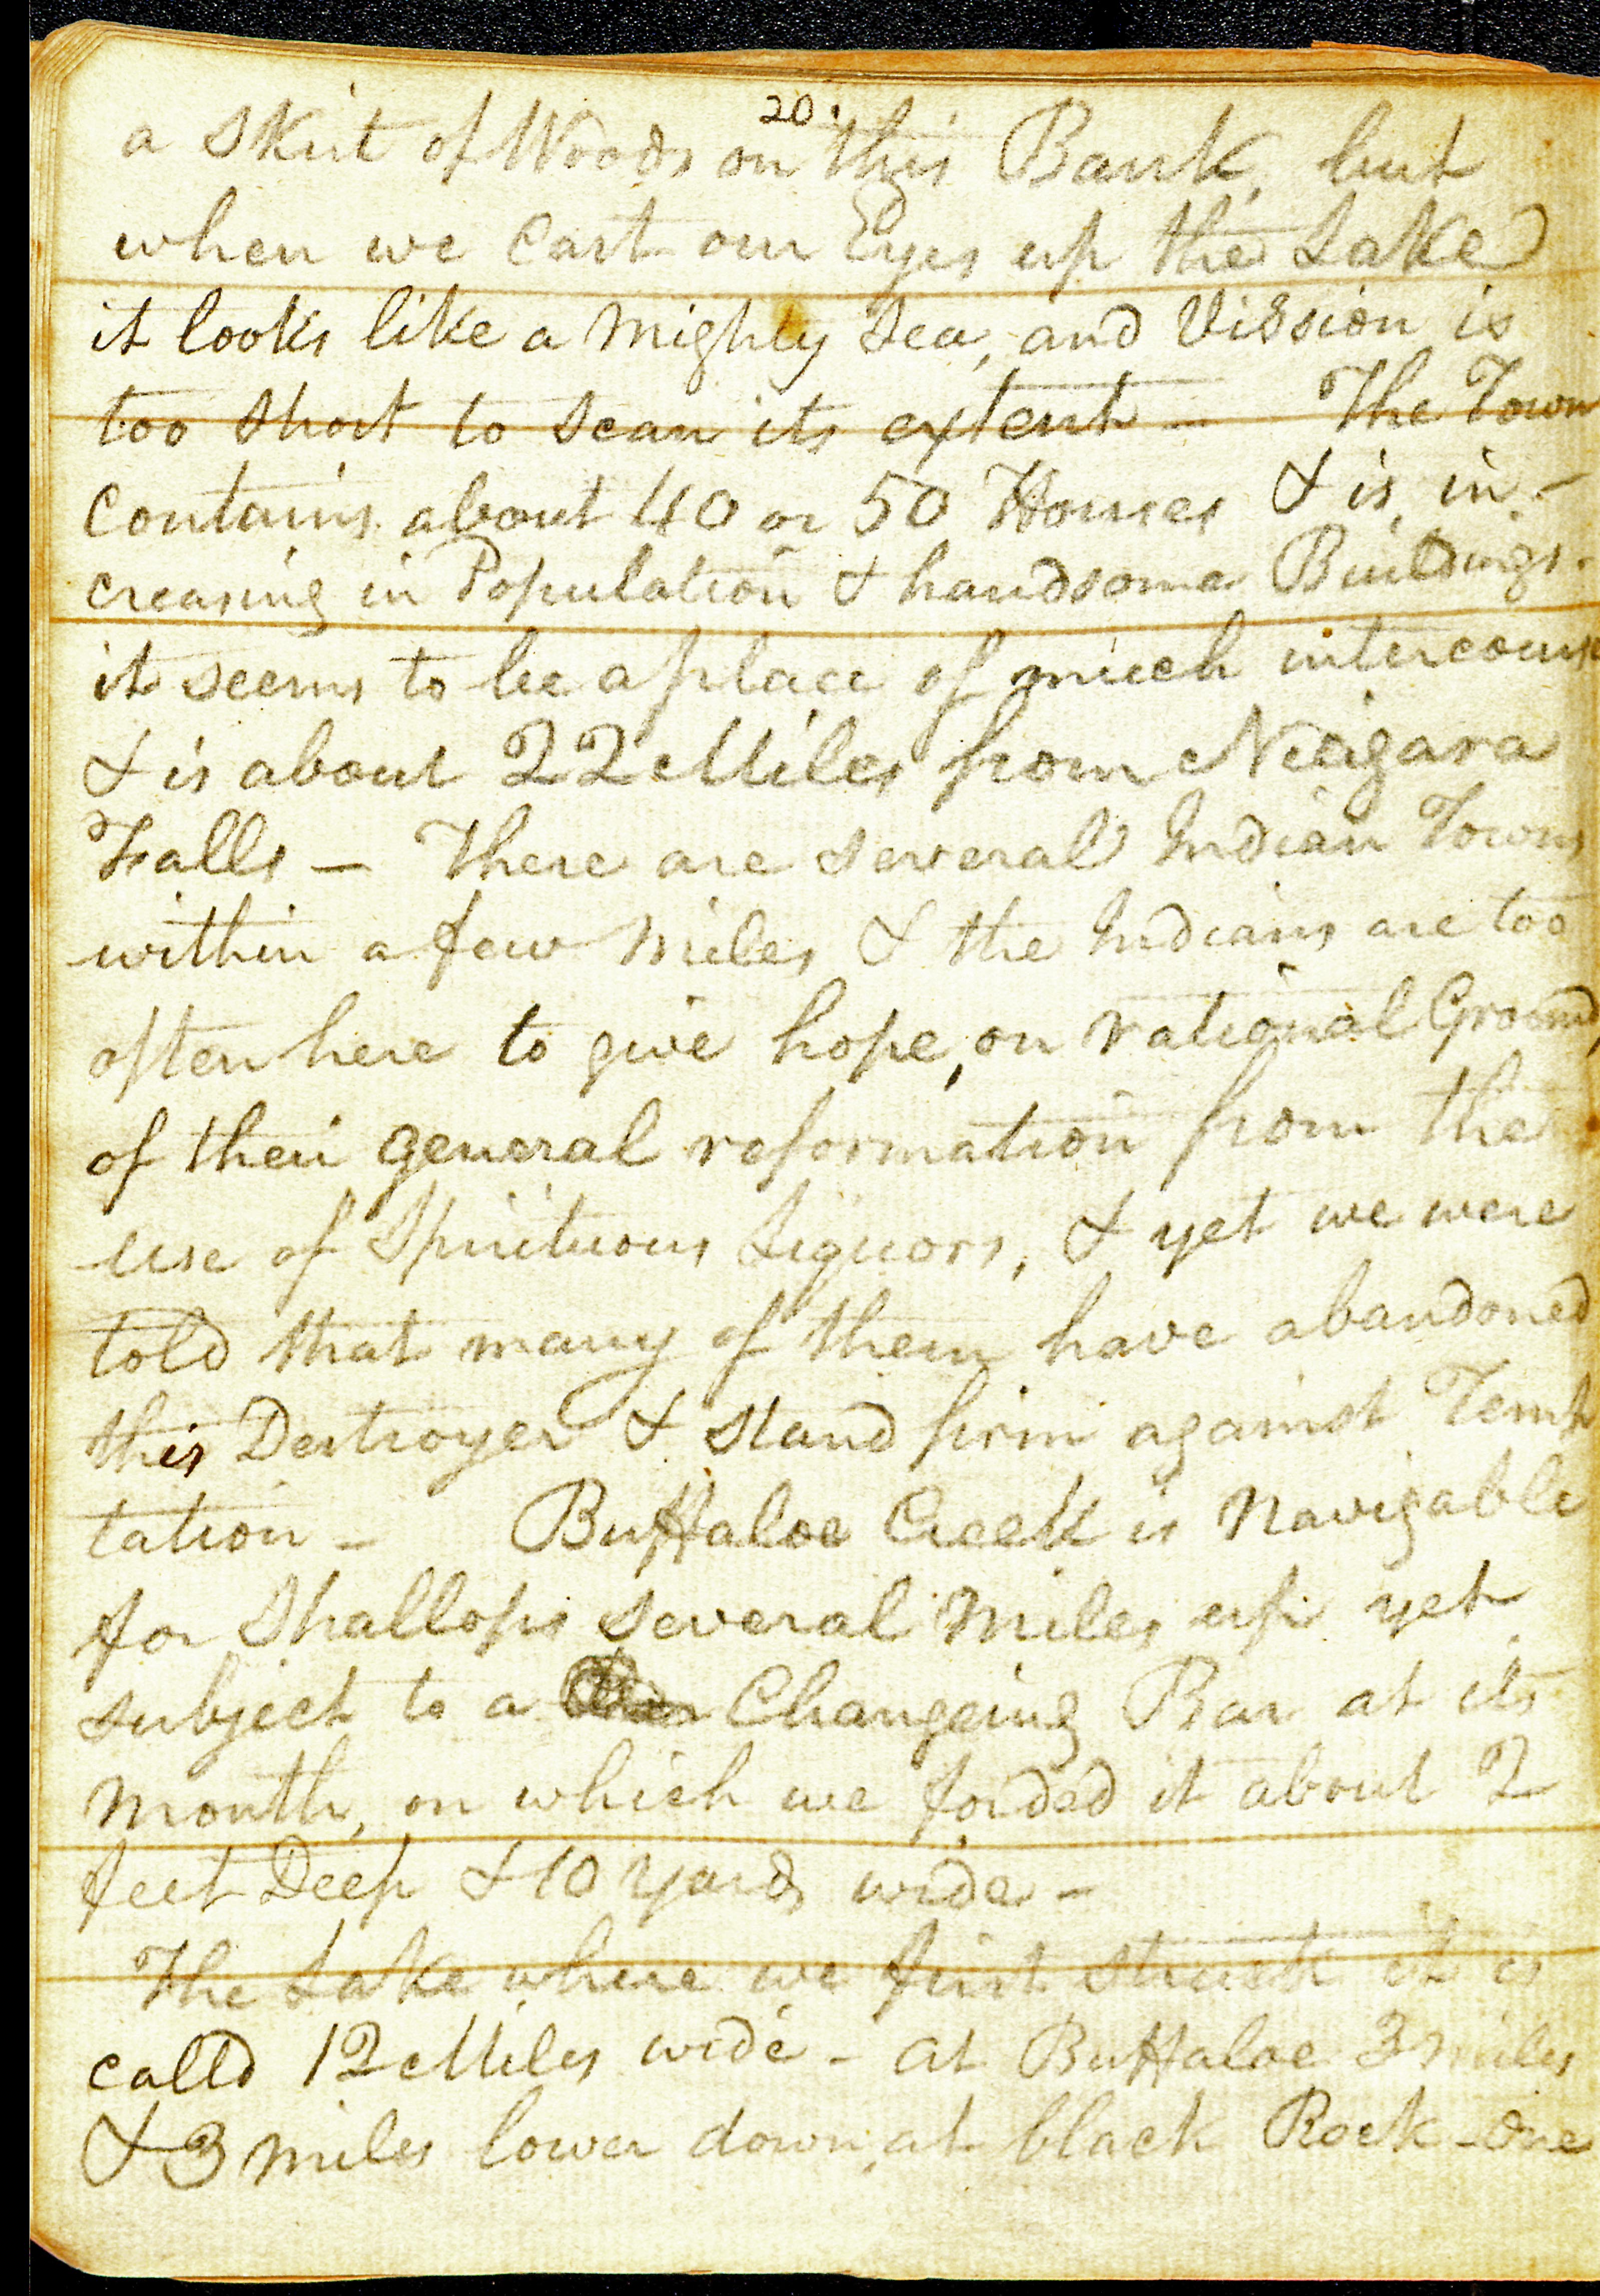 20.
a Skirt of Woods on this Bank, but
when we Cast our Eyes up the Lake
it looks like a Mighty Sea, and Vission is
too Short to Scan its extent — The Town
Contains about 40 or 50 Houses & is in-
creasing in Population & handsome Buildings.
it seems to be a place of much intercourse
& is about 22 Miles from Niagara
Falls — There are several Indian Towns
within a few Miles & the Indians are too
often here to give hope, on rational Ground,
of their general reformation from the
use of Spirituous Liquors, & yet we were
told that many of them have abandoned
this Destroyer & stand firm against Temp
tation — Buffaloe Creek is Navigable
for Shallops several Miles up yet
subject to a Changeing Bar at its
Mouth, on which we forded it about 2
feet Deep & 10 Yards wide —
The Lake where we first struck it is
calld 12 Miles wide - at Buffaloe 3 miles
& 3 miles lower down, at black Rock - One